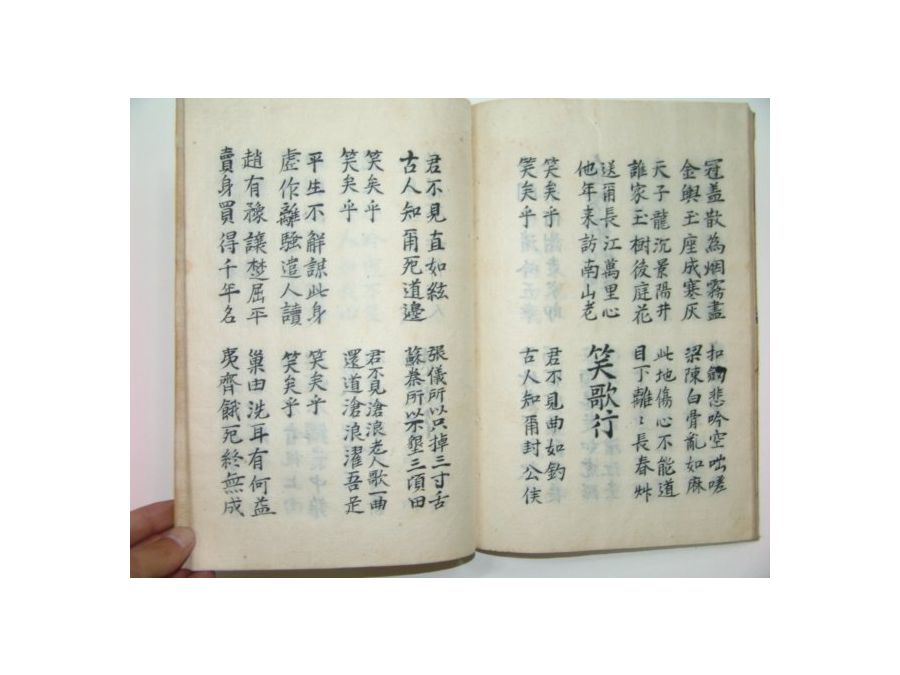 冠盖散為烟霧盡
金輿玉座成寒灰
扣劒悲吟空咄嗟
梁陳白骨亂如麻
天子龍沉景陽井
誰家玉樹後庭花
此地傷心不能道
目下離〻長春艸
送爾長江萬里心
他年来訪南山老
笑歌行
笑矣乎
笑矣乎
君不見曲如鈎
古人知爾封公侯
君不見直如絃
古人知爾死道邊
張儀所以只掉三寸舌
蘇秦所以不墾三頃田
笑矣乎
笑矣乎
君不見滄浪老人歌一曲
還道滄浪濯吾足
平生不解謀此身
虛作離騷遣人讀
笑矣乎
笑矣乎
趙有豫讓楚屈平
賣身買得千年名
巢由洗耳有何益
夷齊餓死終無成